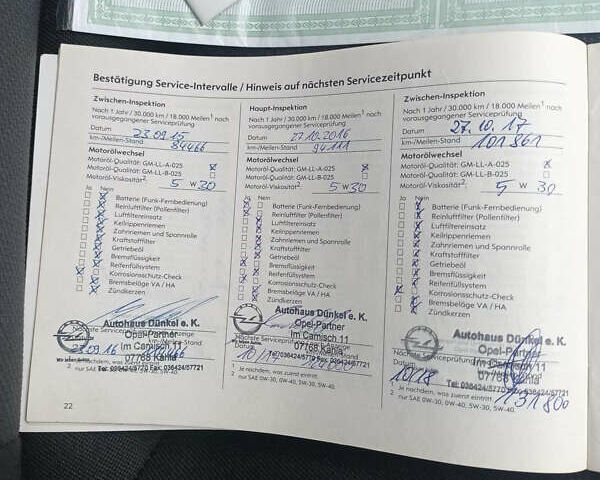 Bestätigung Service-Intervalle / Hinweis auf nächsten Servicezeitpunkt
Zwischen-Inspektion
Nach 1 Jahr / 30.000 km / 18.000 Meilen1 nach
vorausgegangener Serviceprüfung
Datum 23.09.15
km-/Meilen-Stand 84466
Motorölwechsel
Motoröl-Qualität: GM-LL-A-025 x
Motoröl-Qualität: GM-LL-B-025
Motoröl-Viskosität2: 5 W 30
Ja Nein
Batterie (Funk-Fernbedienung)
Reinluftfilter (Pollenfilter)
Luftfiltereinsatz
Keilrippenriemen
Zahnriemen und Spannrolle
Kraftstofffilter
Getriebeöl
Bremsflüssigkeit
Reifenfüllsystem
Korrosionsschutz-Check
Bremsbeläge VA / HA
Zündkerzen
Autohaus Dünkel e. K.
Opel-Partner
Im Camisch 11
07768 Kahla
Tel: 036424/5770 Fax: 036424/57721
1 Je nachdem, was zuerst eintritt.
2 nur SAE 0W-30, 0W-40, 5W-30, 5W-40.
22
Haupt-Inspektion
Nach 1 Jahr / 30.000 km / 18.000 Meilen1 nach
vorausgegangener Serviceprüfung
Datum 27.10.2016
km-/Meilen-Stand 94111
Motorölwechsel
Motoröl-Qualität: GM-LL-A-025 x
Motoröl-Qualität: GM-LL-B-025
Motoröl-Viskosität2: 5 W 30
Ja Nein
Batterie (Funk-Fernbedienung)
Reinluftfilter (Pollenfilter)
Luftfiltereinsatz
Keilrippenriemen
Zahnriemen und Spannrolle
Kraftstofffilter
Getriebeöl
Bremsflüssigkeit
Reifenfüllsystem
Korrosionsschutz-Check
Bremsbeläge VA / HA
Zündkerzen
Autohaus Dünkel e. K.
Opel-Partner
Im Camisch 11
07768 Kahla
Tel: 036424/5770 Fax: 036424/57721
1 Je nachdem, was zuerst eintritt.
2 nur SAE 0W-30, 0W-40, 5W-30, 5W-40.
Zwischen-Inspektion
Nach 1 Jahr / 30.000 km / 18.000 Meilen1 nach
vorausgegangener Serviceprüfung
Datum 27.10.17
km-/Meilen-Stand 101861
Motorölwechsel
Motoröl-Qualität: GM-LL-A-025 x
Motoröl-Qualität: GM-LL-B-025
Motoröl-Viskosität2: 5 W 30
Ja Nein
Batterie (Funk-Fernbedienung)
Reinluftfilter (Pollenfilter)
Luftfiltereinsatz
Keilrippenriemen
Zahnriemen und Spannrolle
Kraftstofffilter
Getriebeöl
Bremsflüssigkeit
Reifenfüllsystem
Korrosionsschutz-Check
Bremsbeläge VA / HA
Zündkerzen
Autohaus Dünkel e. K.
Opel-Partner
Im Camisch 11
07768 Kahla
Nächste Serviceprüfung
10/18 131 800
Tel: 036424/5770 Fax: 036424/57721
1 Je nachdem, was zuerst eintritt.
2 nur SAE 0W-30, 0W-40, 5W-30, 5W-40.